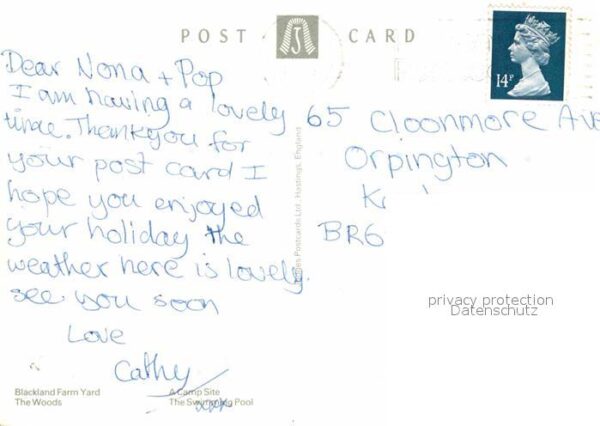 POST CARD
14P
Dear Nona + Pop
I am having a lovely
time. Thankyou for
your post card I
hope you enjoyed
your holiday the
weather here is lovely.
see you soon
Love
Cathy
65 Cloonmore Ave
Orpington
K
BR6
Postcards Ltd., Hastings, England
privacy protection
Datenschutz
Blackland Farm Yard
The Woods
A Camp Site
The Swimming Pool